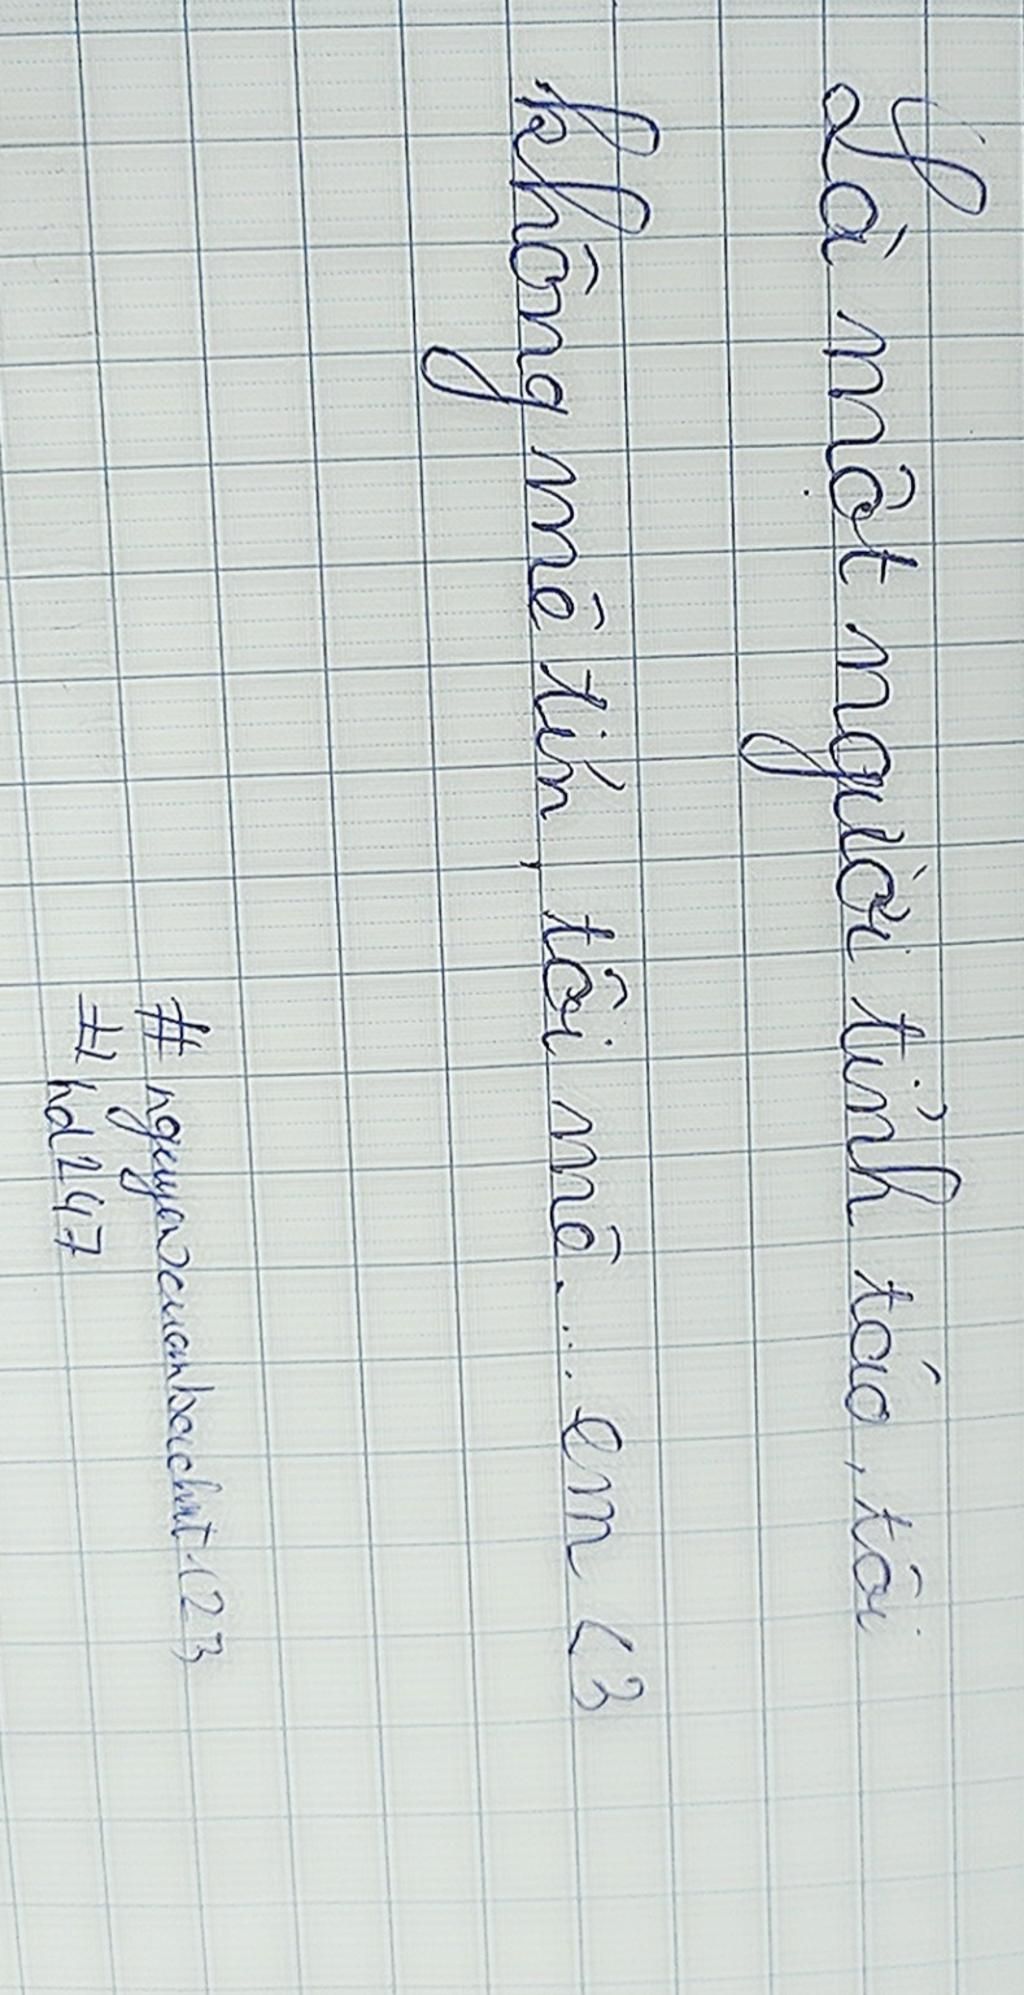 Là một người tỉnh táo, tôi
không mê tín, tôi mê.... em <3
#
# hd247